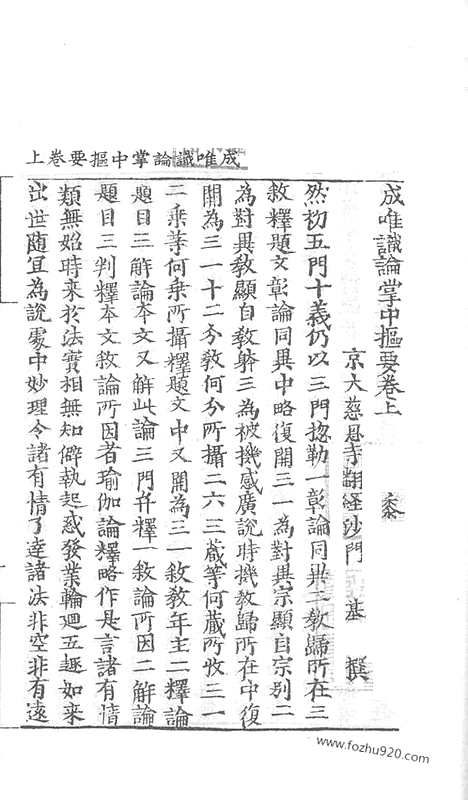 成唯識論掌中摳要卷上
成唯識論掌中摳要卷上
京大慈恩寺翻經沙門 基 撰
然初五門十義仍以三門捴勒一彰論同異二教歸所在三
敘釋題文彰論同異中略復開三一為對異宗顯自宗別二
為對異教顯自教躰三為被機感廣說時機教歸所在中復
開為三一十二分教何分所攝二六三蔵等何蔵所收三一
二乘等何乘所攝釋題文中又開為三一敘教年主二釋論
題目三解論夲文又解此論三門幷釋一敘論所因二解論
題目三判釋本文敘論所因者瑜伽論釋略作是言諸有情
類無始時来於法實相無知僻執起惑發業輪迴五趣如来
出世随冝為說處中妙理令諸有情了達諸法非空非有遠
www.fozhu920.com